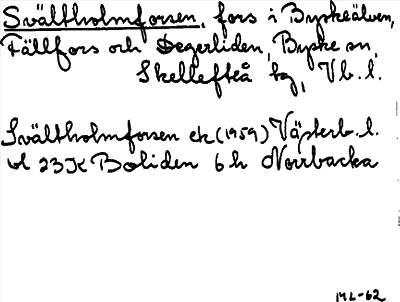 Svältholmforsen, fors i Byskeälven,
Fällfors och Degerliden, Byske sn,
Skellefteå kg, Vb. l.
Svältholmforsen ek (1959) Västerb. l.
bl 23K Boliden 6h Norrbacka
ML-62